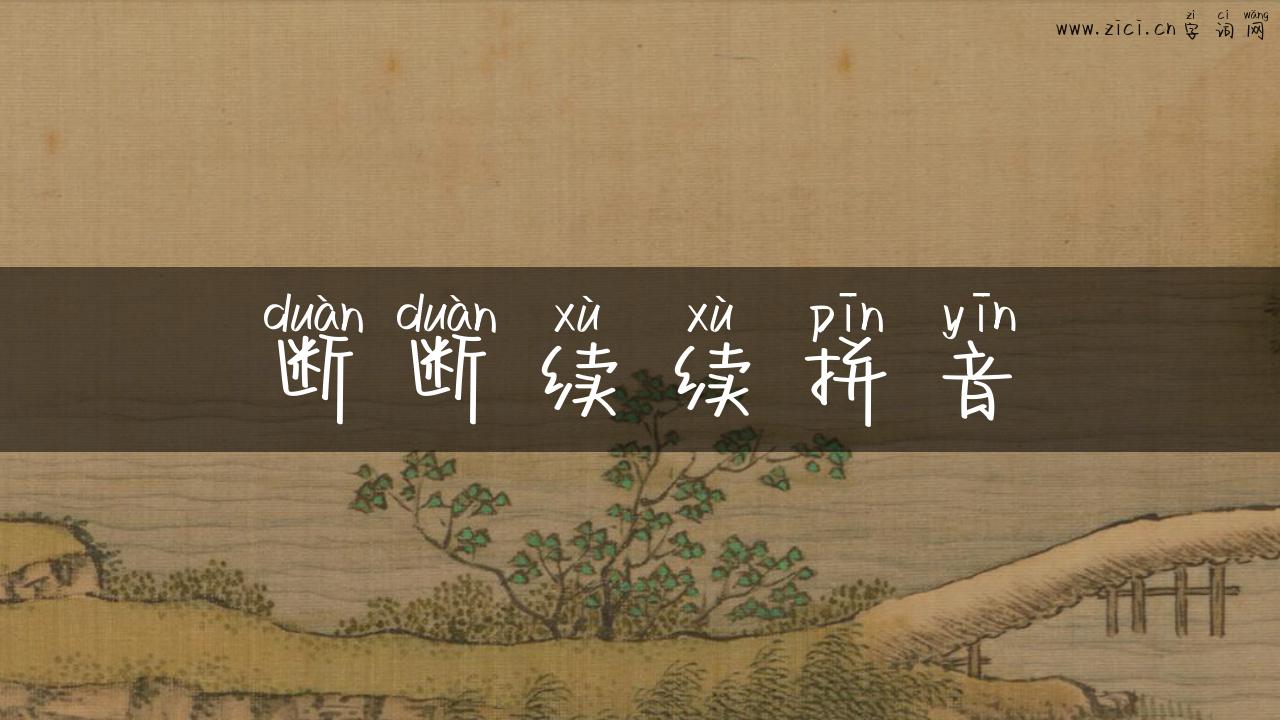 zì cí wǎng
www.zici.cn 字 词 网
duàn duàn xù xù pīn yīn
断 断 续 续 拼 音